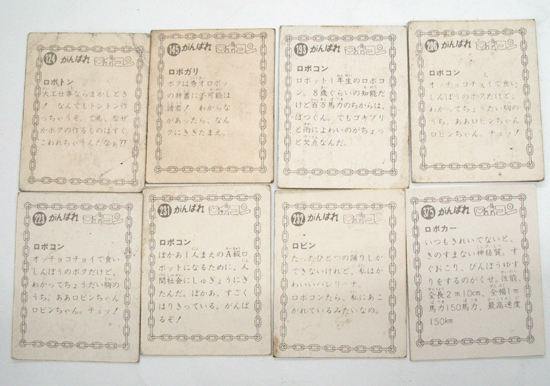 124 がんばれ ロボコン
ロボトン
大工仕事ならまかしとき
！ なんでもトントン作
っちゃうぞ。でも、なぜ
かボクの作るものはすぐ
こわれちゃうんだなぁ??
145 がんばれ ロボコン
ロボガリ
ボクは秀才ロボッ
トの神書に不可能は
諸君！ わからな
があったら、なん
クにききたまえ。
193 がんばれ ロボコン
ロボコン
ロボット1年生のロボコ
ン。8歳ぐらいの知能だ
けど百万馬力のちからは、
ばつぐん。でもゴキブリ
と雨によわいのがちょっ
と欠点なんだ。
がんばれ ロボコン
ロボコン
オッチョコチョイで食い
しんぼうのボクだけど、
わかってちょうだい胸の
うち。ああロビンちゃん
ロビンちゃん。チュッ！
がんばれ ロボコン
ロボコン
オッチョコチョイで食い
しんぼうのボクだけど、
わかってちょうだい胸の
うち。ああロビンちゃん
ロビンちゃん。チュッ！
231 がんばれ ロボコン
ロボコン
ぼかぁ1人まえのA級ロ
ボットになるために、人
間社会にしゅぎょうにき
たんだ。ぼかぁ、すごく
はりきっている。がんば
るぞ！
232 がんばれ ロボコン
ロビン
たったひとつの踊りしか
できないけれど、私はか
わいいバレリーナ。
ロボコンたら、私にあこ
がれているみたいなの。
375 がんばれ ロボコン
ロボカー
いつもきれいでないと、
きのすまない神経質。す
ぐおこり、びんぼうゆす
りをするのがくせ。性能、
全長2m10cm、全幅1m
馬力150馬力、最高速度
150km